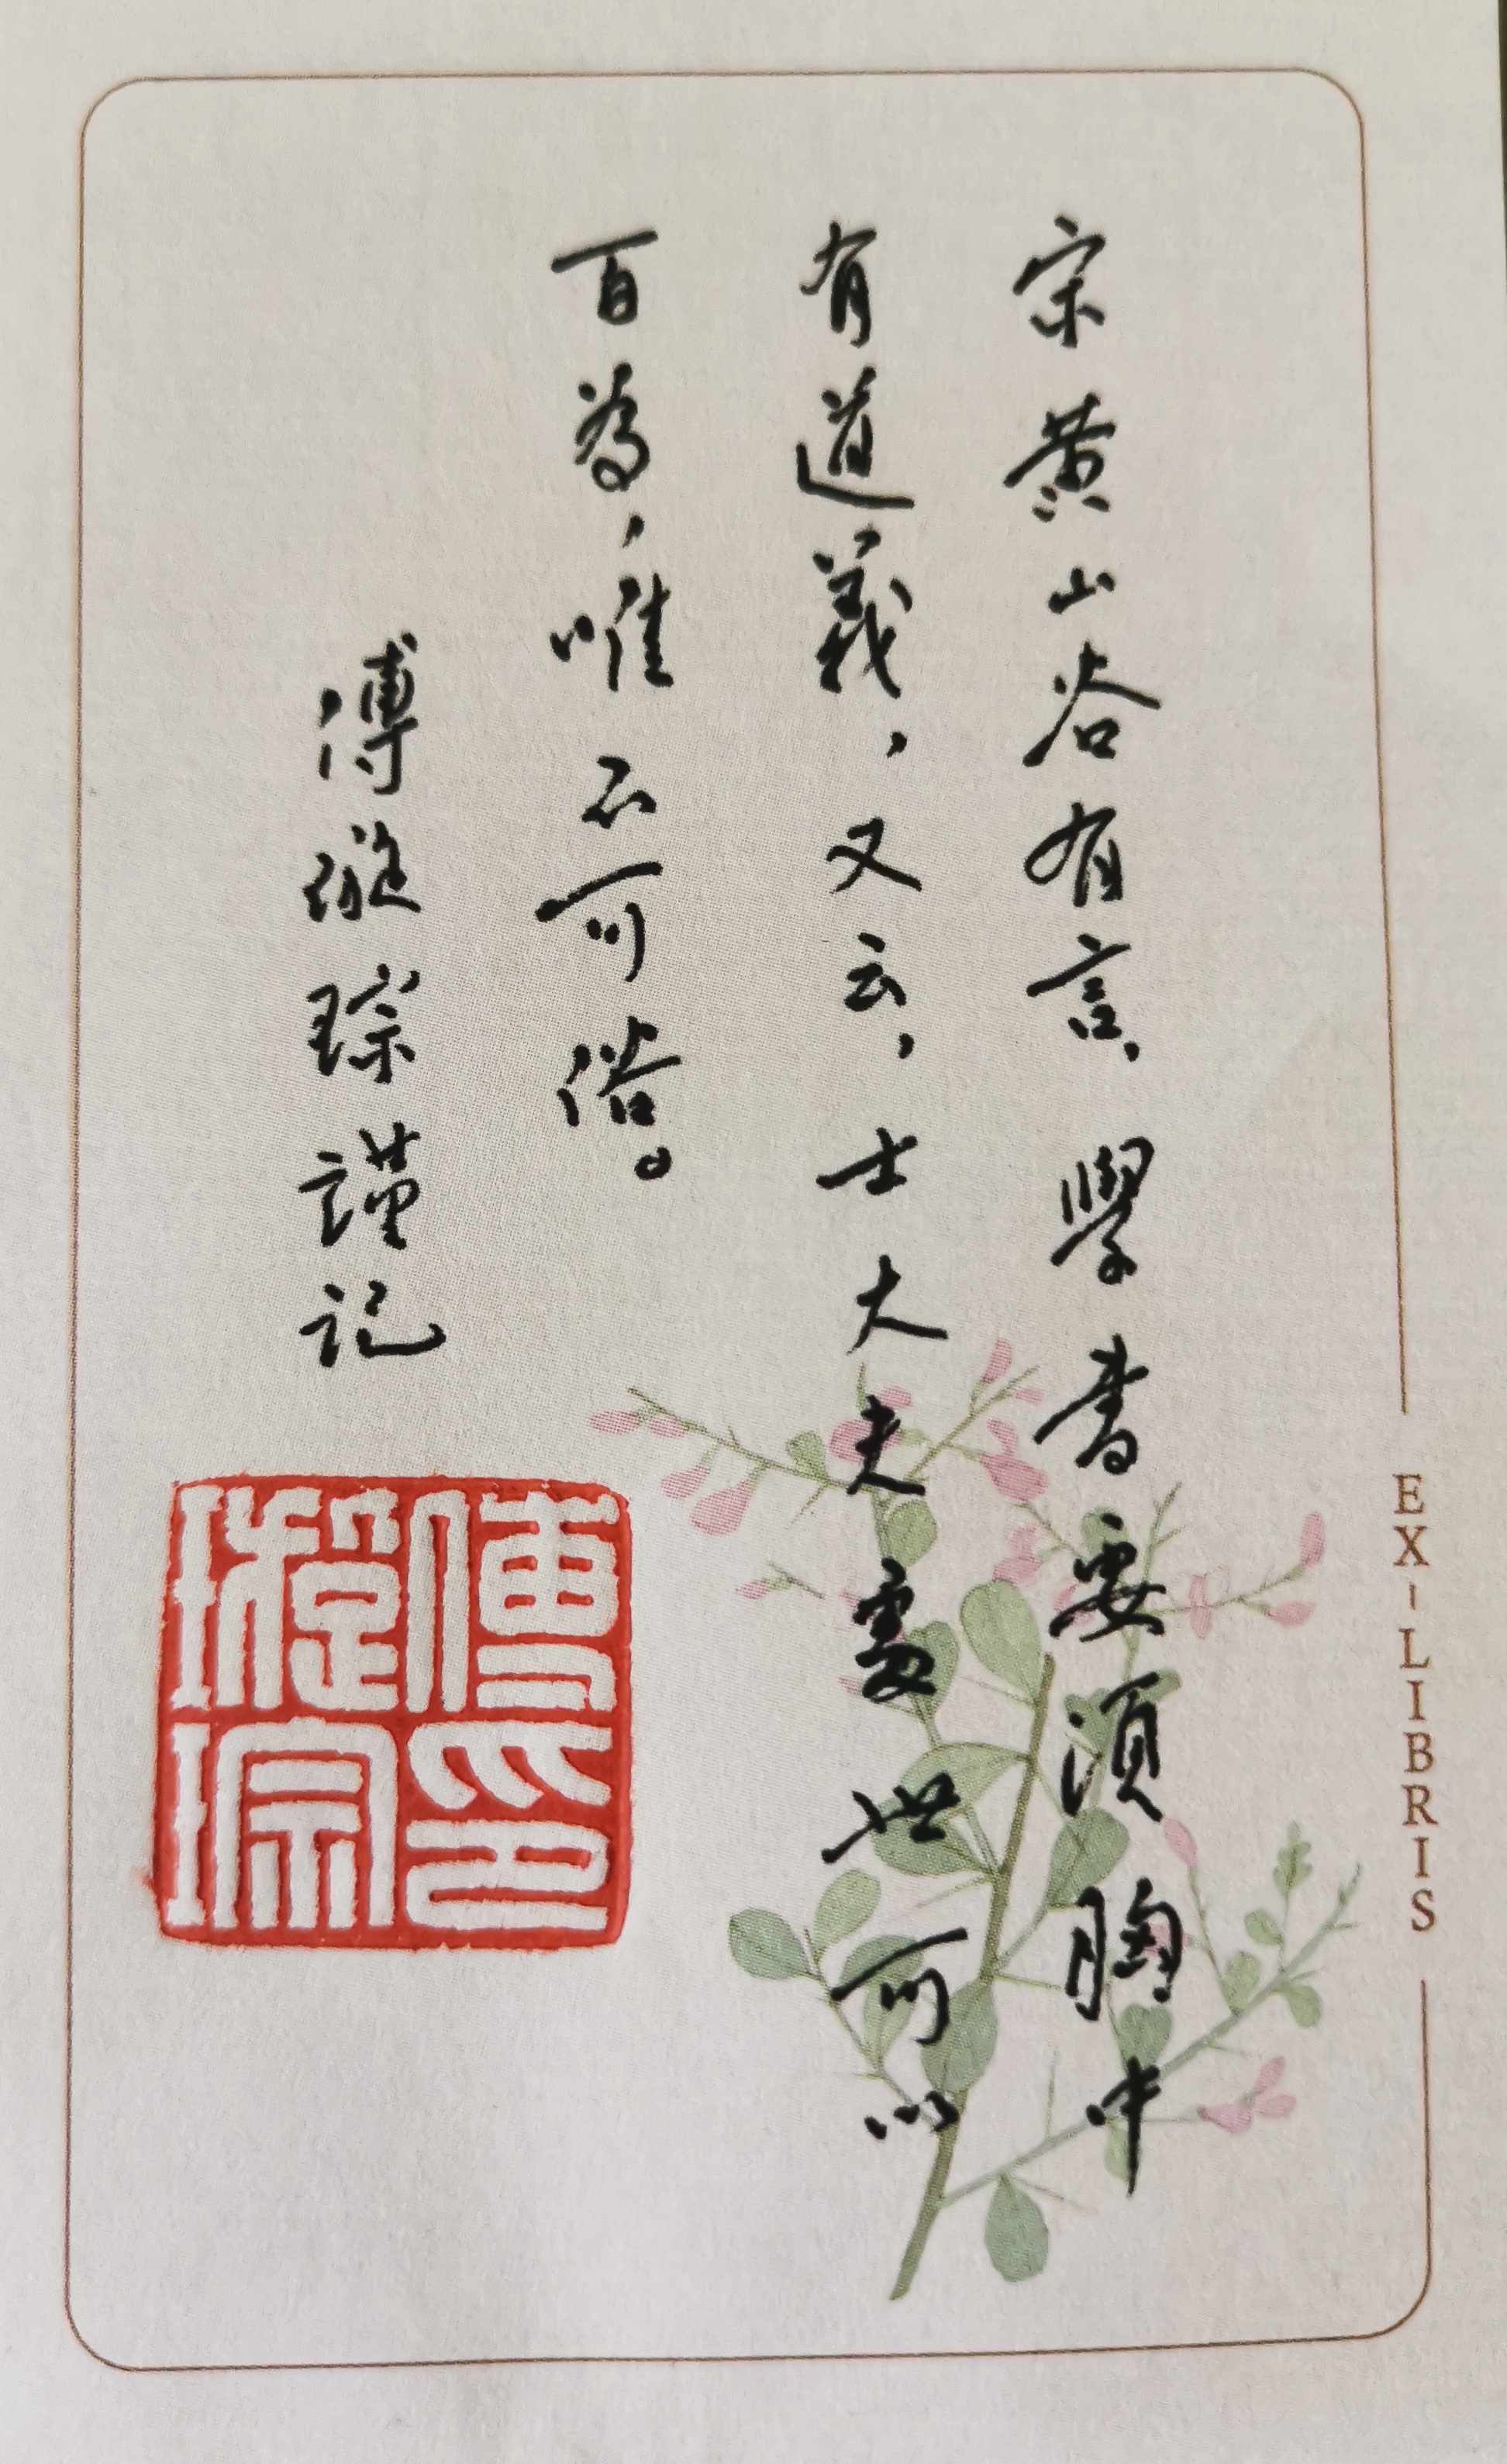 宋黄山谷有言，學書要須胸中
有道義，又云，士大夫處世可以
百為，唯不可俗。
傅璇琮謹記
傅印璇琮
EX-LIBRIS